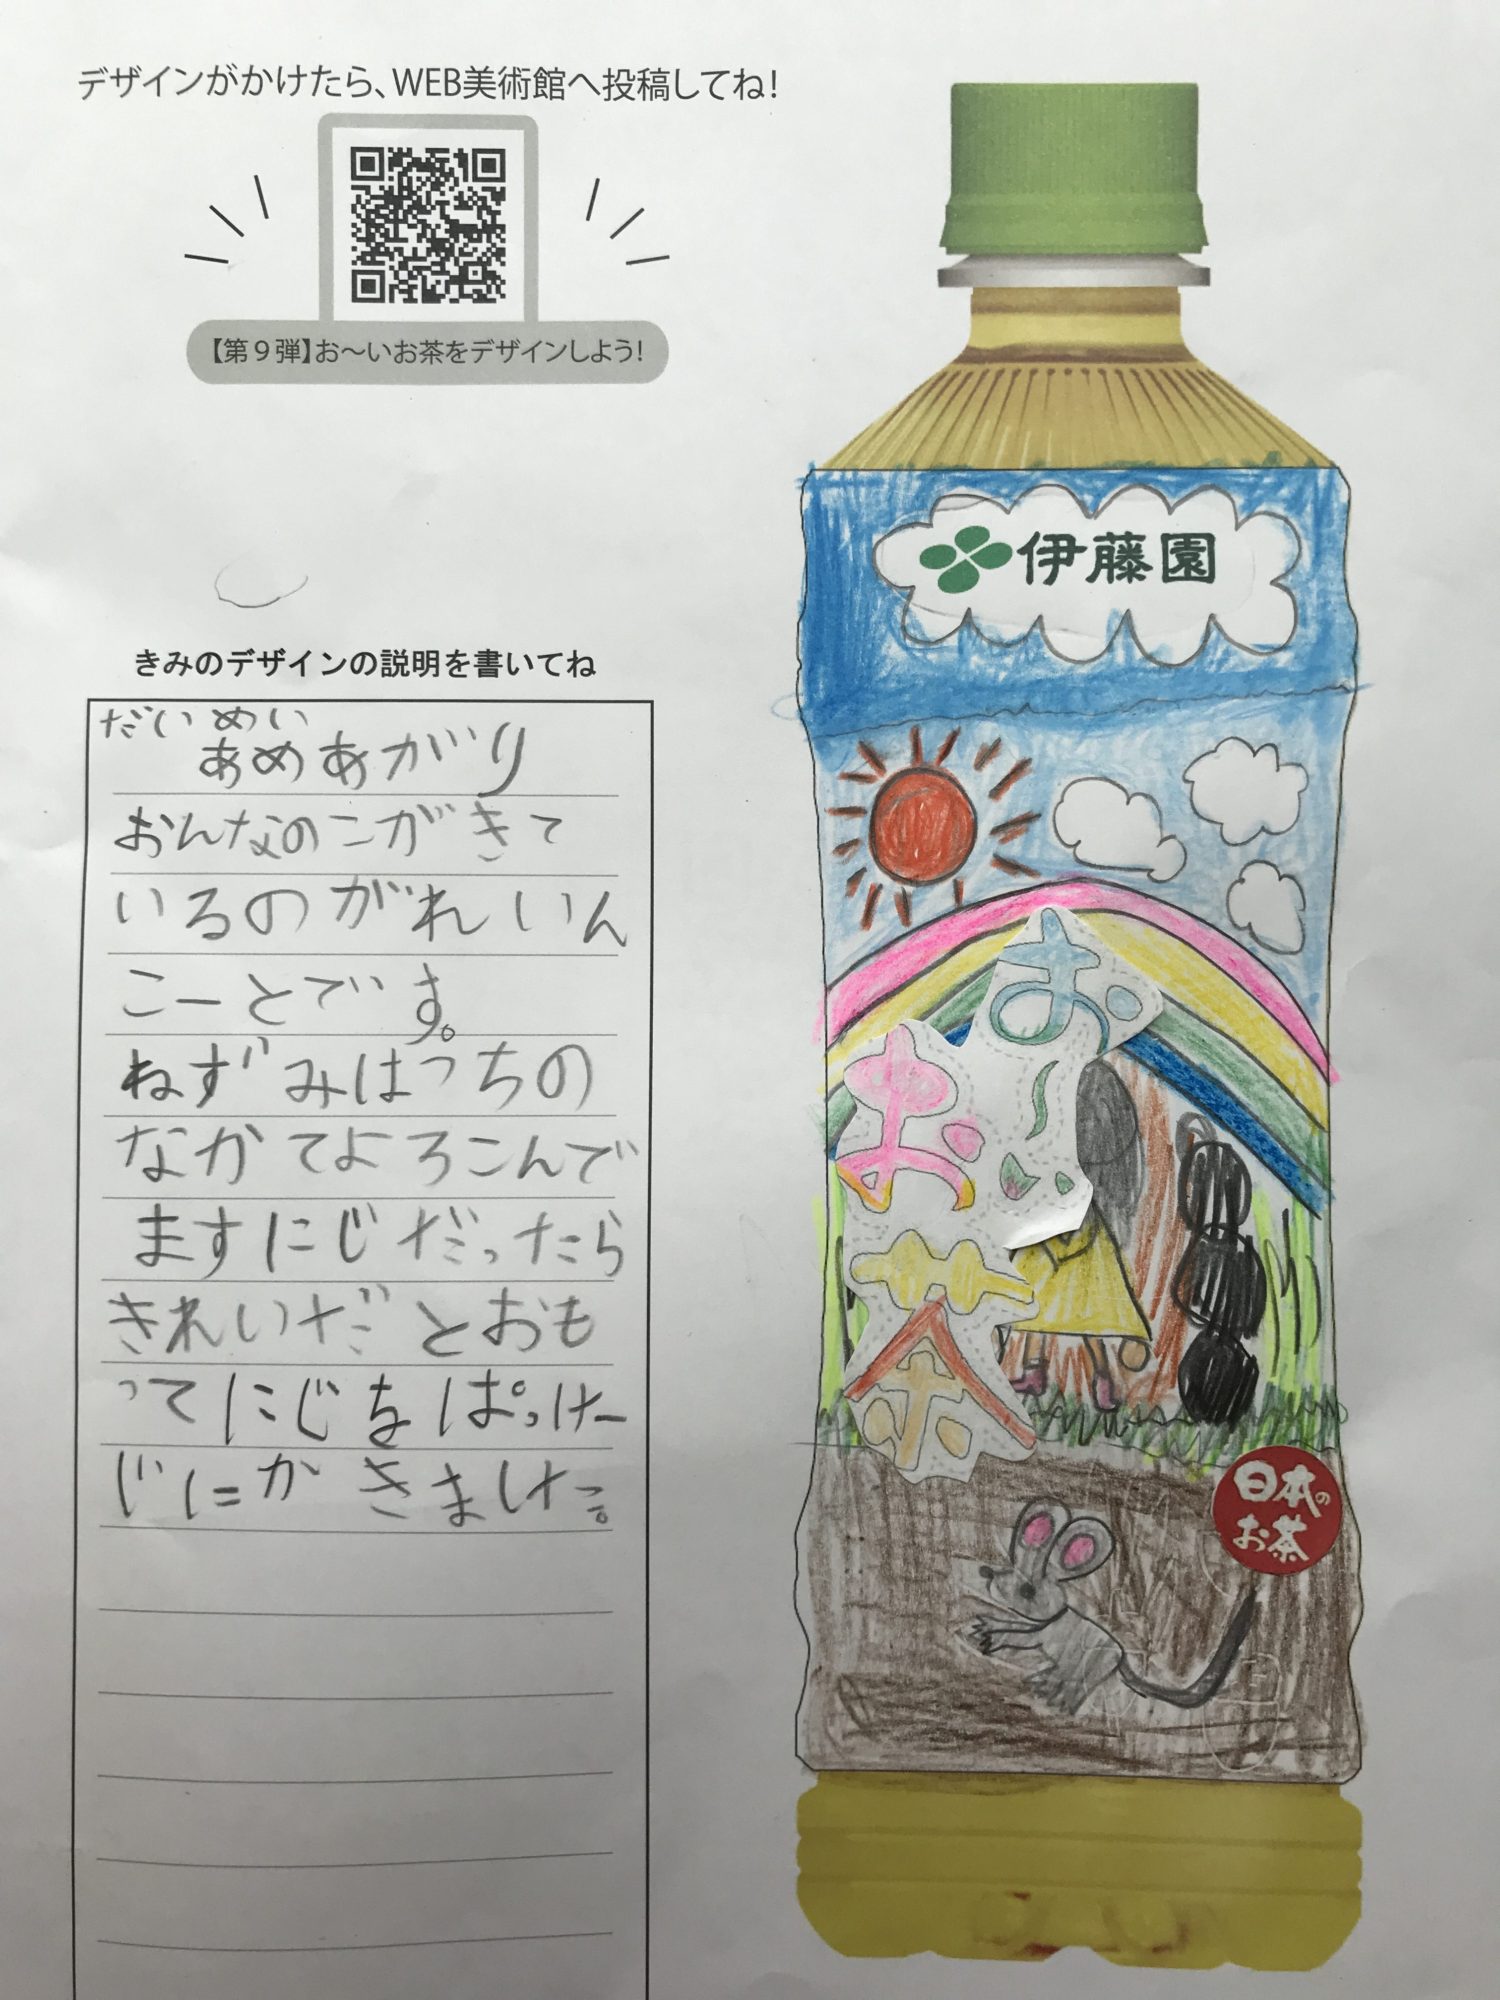 デザインがかけたら、WEB美術館へ投稿してね!
【第9弾】お〜いお茶をデザインしよう!
きみのデザインの説明を書いてね
だいめい
あめあがり
おんなのこがきて
いるのがれいん
こーとです。
ねずみはっちの
なかてよろこんで
ますにじだったら
きれいだとおも
ってにじをぱっけー
じにかきました。
伊藤園
お〜い
お茶
日本の
お茶